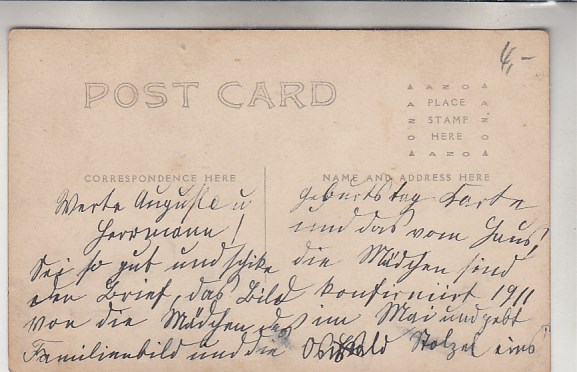 4,-
POST CARD
AZO
PLACE
STAMP
HERE
AZO
CORRESPONDENCE HERE
NAME AND ADDRESS HERE
Werte Auguste u
Herrmann!
Sei so gut und schike
den Brief, das Bild
von die Mädchen, das
Familienbild und die
Geburtstag Karte
und das vom Haus,
die Mädchen sind
konfermiert 1911
im Mai und gebt
Oswald Stolzel eins